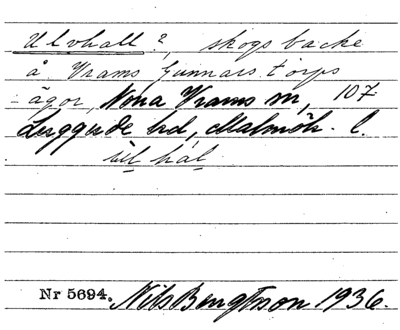 Ulvhall?, skogsbacke
å Vrams Gunnarstorps
ägor, Norra Vrams sn, 107
Luggude hd, Malmöh. l.
Nr 5694. Nils Bengtsson 1936.